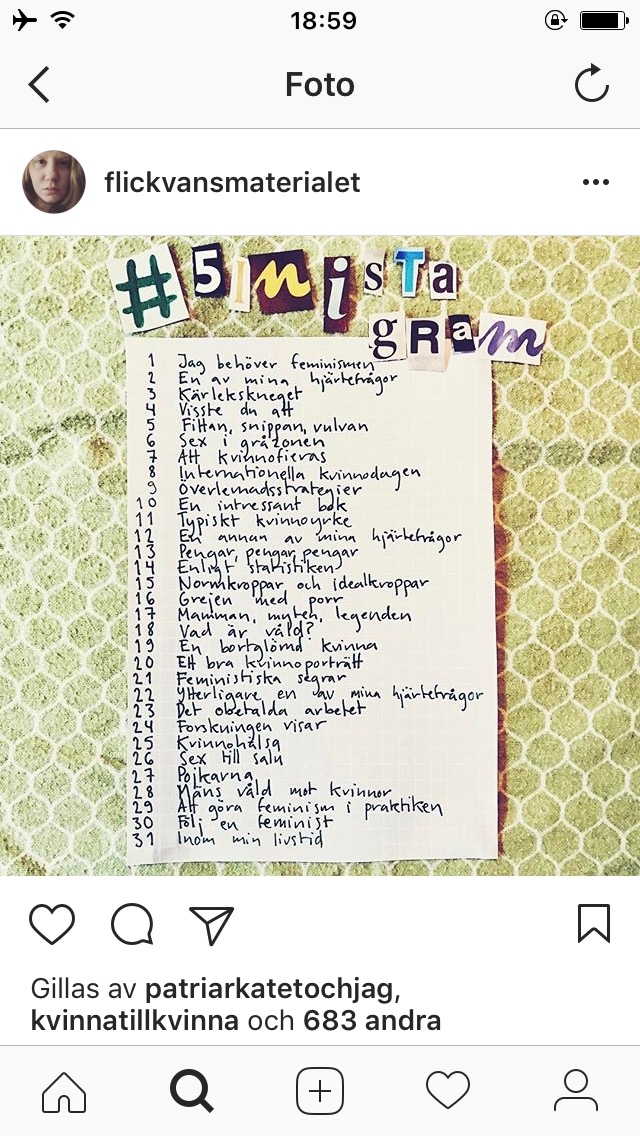 18:59
Foto
flickvansmaterialet
#5inista
gram
1 Jag behöver feminismen
2 En av mina hjärtefrågor
3 Kärlekskneget
4 Visste du att
5 Fittan, snippan, vulvan
6 Sex i gråzonen
7 Att kvinnofieras
8 Internationella kvinnodagen
9 Överlevnadsstrategier
10 En intressant bok
11 Typiskt kvinnoyrke
12 En annan av mina hjärtefrågor
13 Pengar, pengar, pengar
14 Enligt statistiken
15 Normkroppar och idealkroppar
16 Grejen med porr
17 Mamman, myten, legenden
18 Vad är våld?
19 En bortglömd kvinna
20 Ett bra kvinnoporträtt
21 Feministiska segrar
22 Ytterligare en av mina hjärtefrågor
23 Det obetalda arbetet
24 Forskningen visar
25 Kvinnohälsa
26 Sex till salu
27 Pojkarna
28 Mäns våld mot kvinnor
29 Att göra feminism i praktiken
30 Följ en feminist
31 Inom min livstid
Gillas av patriarkatetochjag,
kvinnatillkvinna och 683 andra